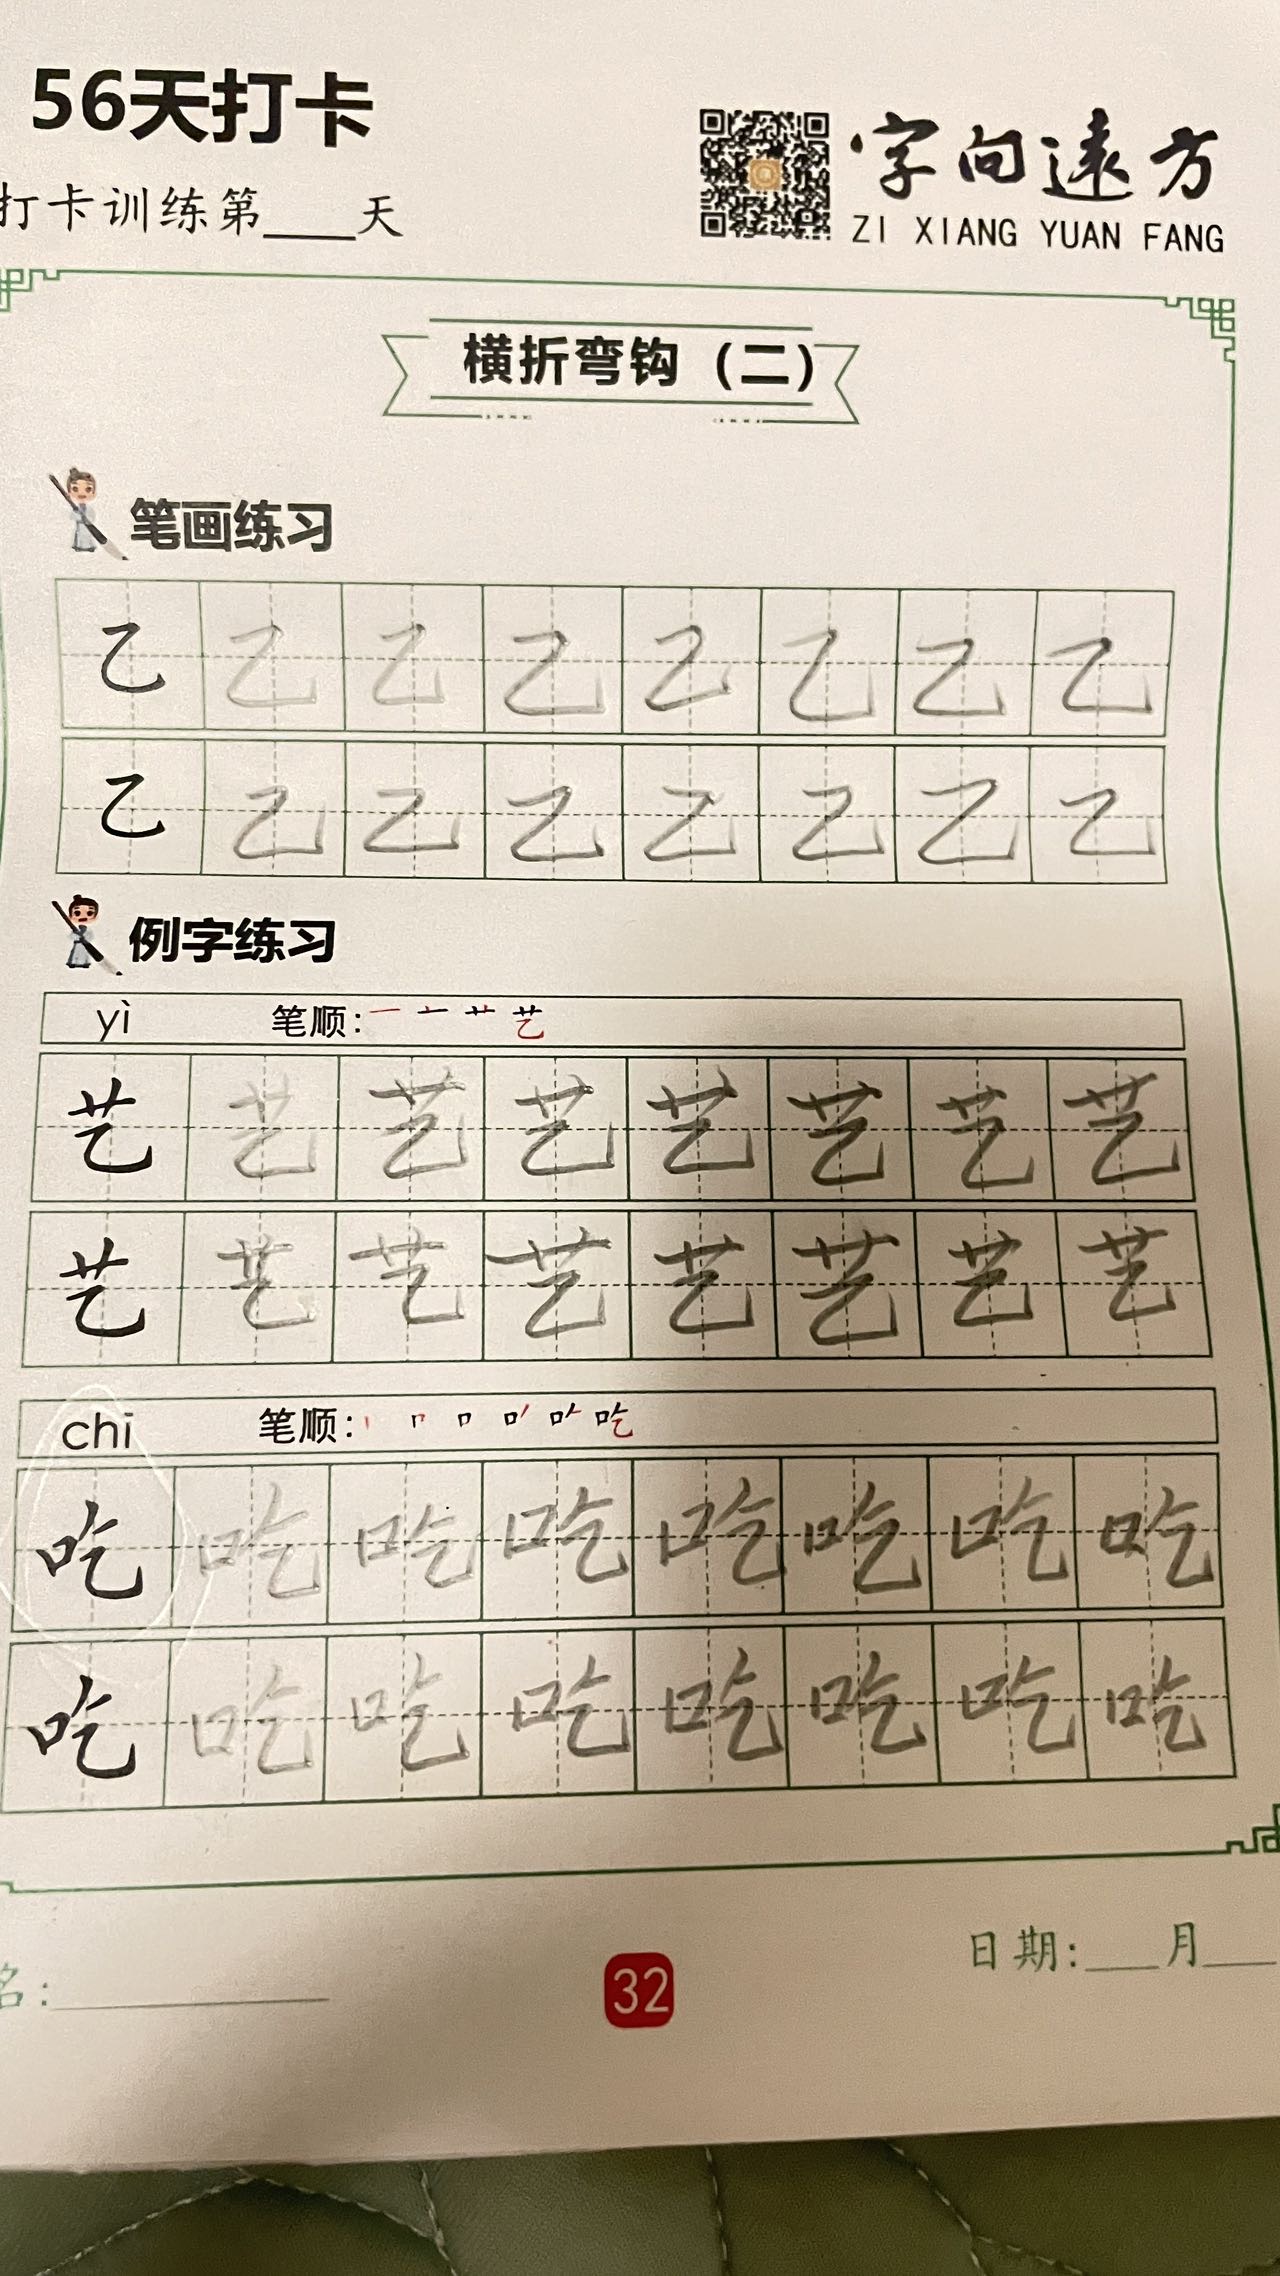 56天打卡
打卡训练第____天
字向遠方
ZI XIANG YUAN FANG
横折弯钩（二）
笔画练习
乙 乙 乙 乙 乙 乙 乙 乙
乙 乙 乙 乙 乙 乙 乙 乙
例字练习
yì 笔顺: 一 十 艹 艺
艺 艺 艺 艺 艺 艺 艺 艺
艺 艺 艺 艺 艺 艺 艺 艺
chi 笔顺:
吃 吃 吃 吃 吃 吃 吃 吃
吃 吃 吃 吃 吃 吃 吃 吃
名:
日期:___月___
32